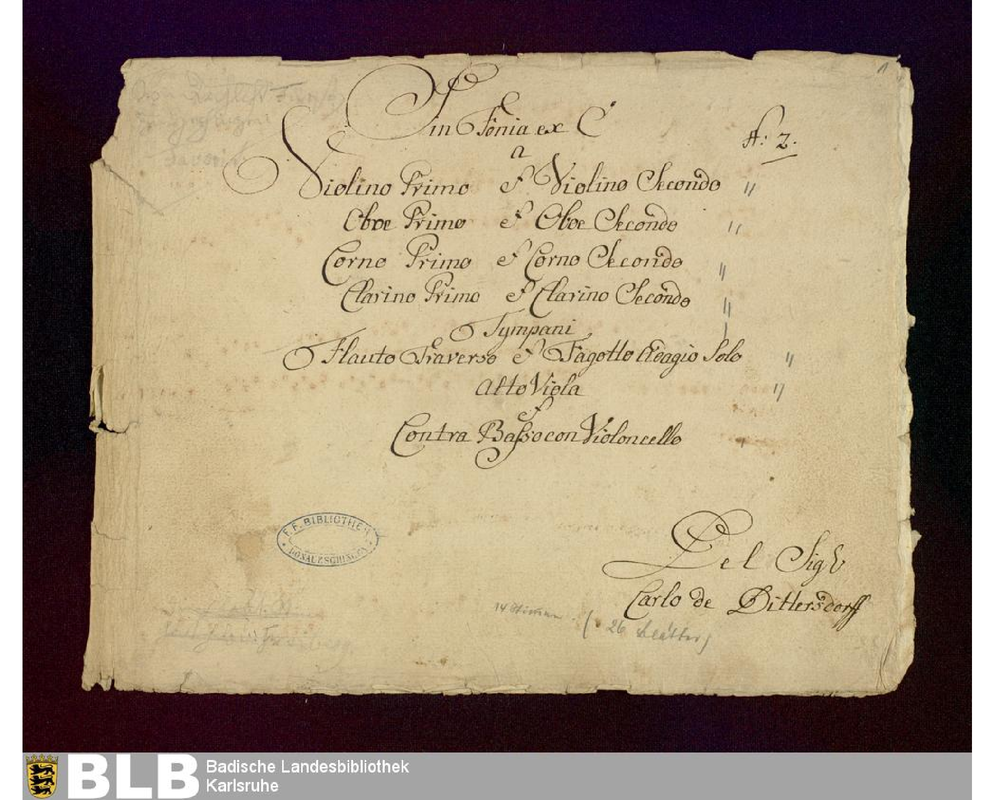 Sinfonia ex C
a
N: 2.
Violino Primo et Violino Secondo "
Oboe Primo et Oboe Secondo "
Corno Primo et Corno Secondo "
Clarino Primo et Clarino Secondo "
Tympani
Flauto Traverso et Fagotto Adagio Solo "
Alto Viola "
et
Contra Basso con Violoncello
F. F. BIBLIOTHEK
DONAUESCHINGEN
Del Sigl
Carlo de Dittersdorff
14 Stimmen (26 Blätter)
BLB Badische Landesbibliothek
Karlsruhe